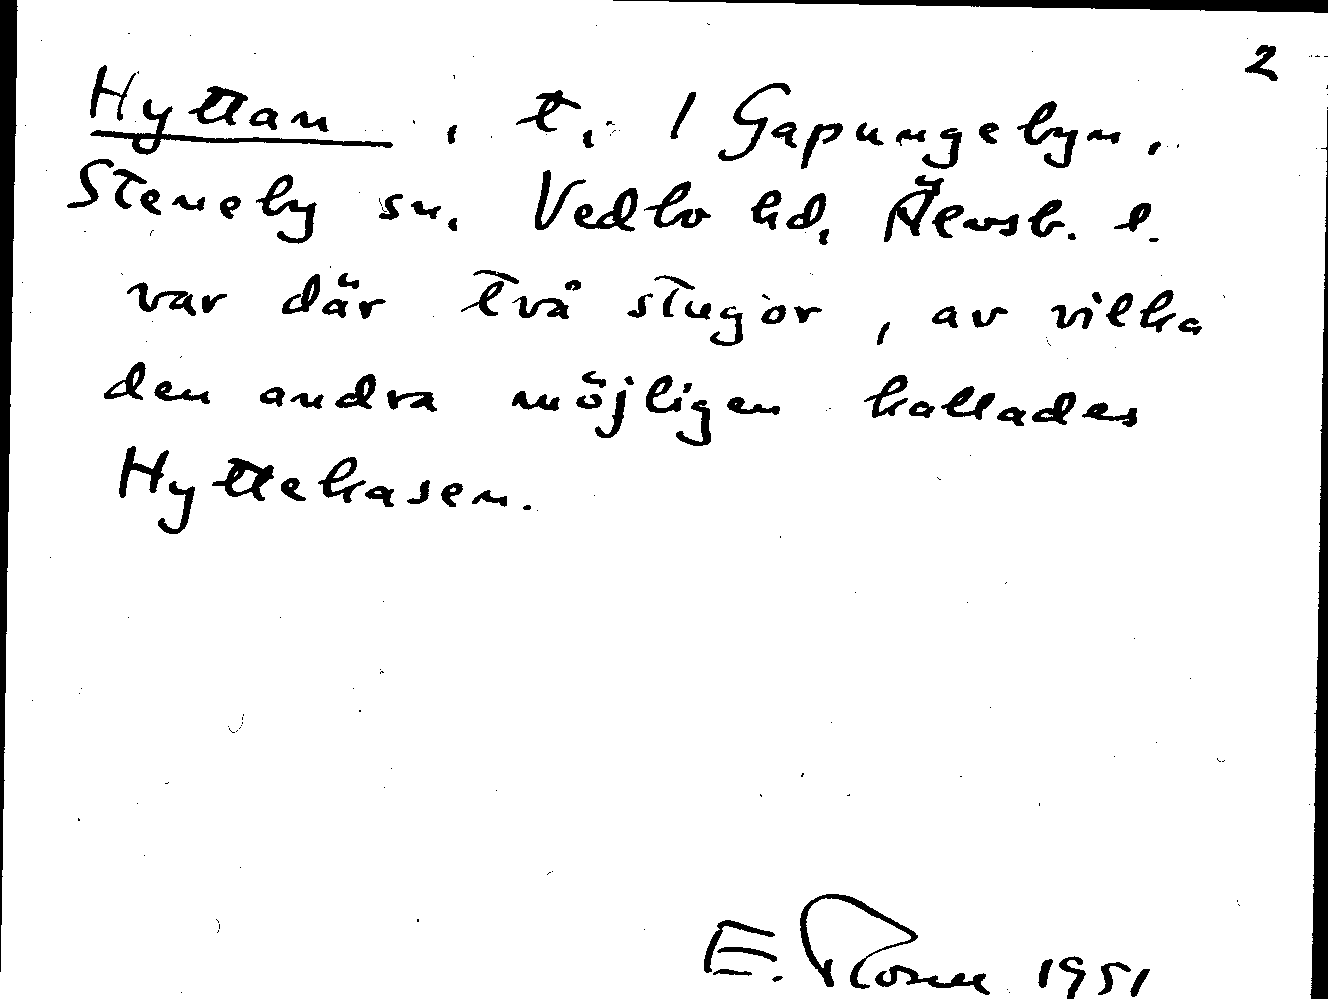 2
Hyttan, t. / Gapungebyn,
Steneby sn. Vedbo hd, Älvsb. l.
var där två stugor, av vilka
den andra möjligen kallades
Hyttekasen.
E. Rosell 1951